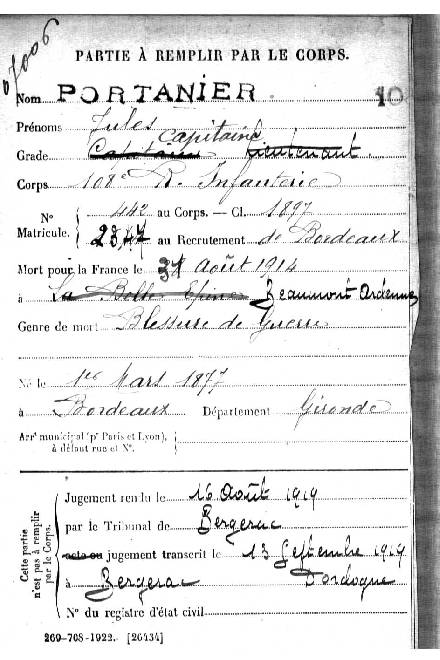 07006
PARTIE À REMPLIR PAR LE CORPS.
Nom PORTANIER 10
Prénoms Jules
Capitaine
Grade Capitaine Lieutenant.
Corps 108e R. Infanterie
N° Matricule. 442 au Corps. — Cl. 1897
2347 au Recrutement de Bordeaux
Mort pour la France le 31 Août 1914
à La Belle Epine Beaumont Ardennes
Genre de mort Blessure de Guerre
Né le 1er Mars 1877
à Bordeaux Département Gironde
Arrt municipal (pr Paris et Lyon),
à défaut rue et N°.
Cette partie n'est pas à remplir par le Corps.
Jugement rendu le 16 Août 1919
par le Tribunal de Bergerac
acte ou jugement transcrit le 13 Septembre 1919
à Bergerac Dordogne
N° du registre d'état civil
269-708-1922. [26434]